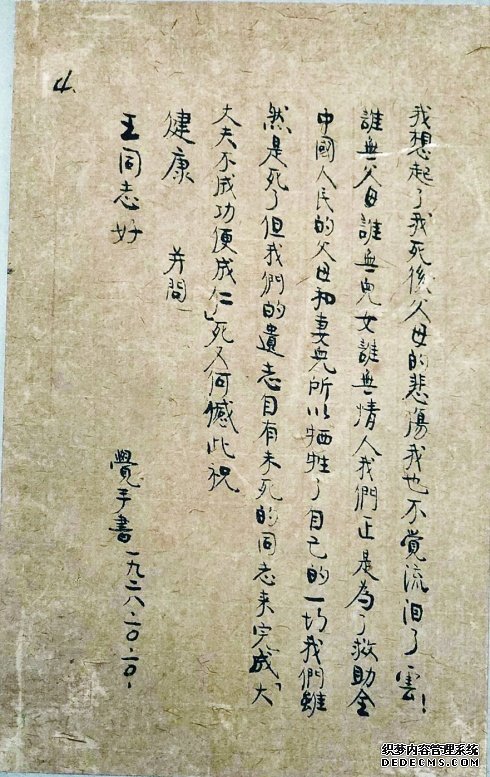 4.
我想起了我死後父母的悲傷我也不覺流泪了雲!
誰無父母誰無兒女誰無情人我們正是為了救助全
中國人民的父母和妻兒所以牺牲了自己的一切我們雖
然是死了但我們的遺志自有未死的同志来完成「大
丈夫不成功便成仁」死又何憾此祝
健康 并問
王同志好
覺手書一九二八·一〇·一〇·
织梦内容管理系统
DEDECMS.COM